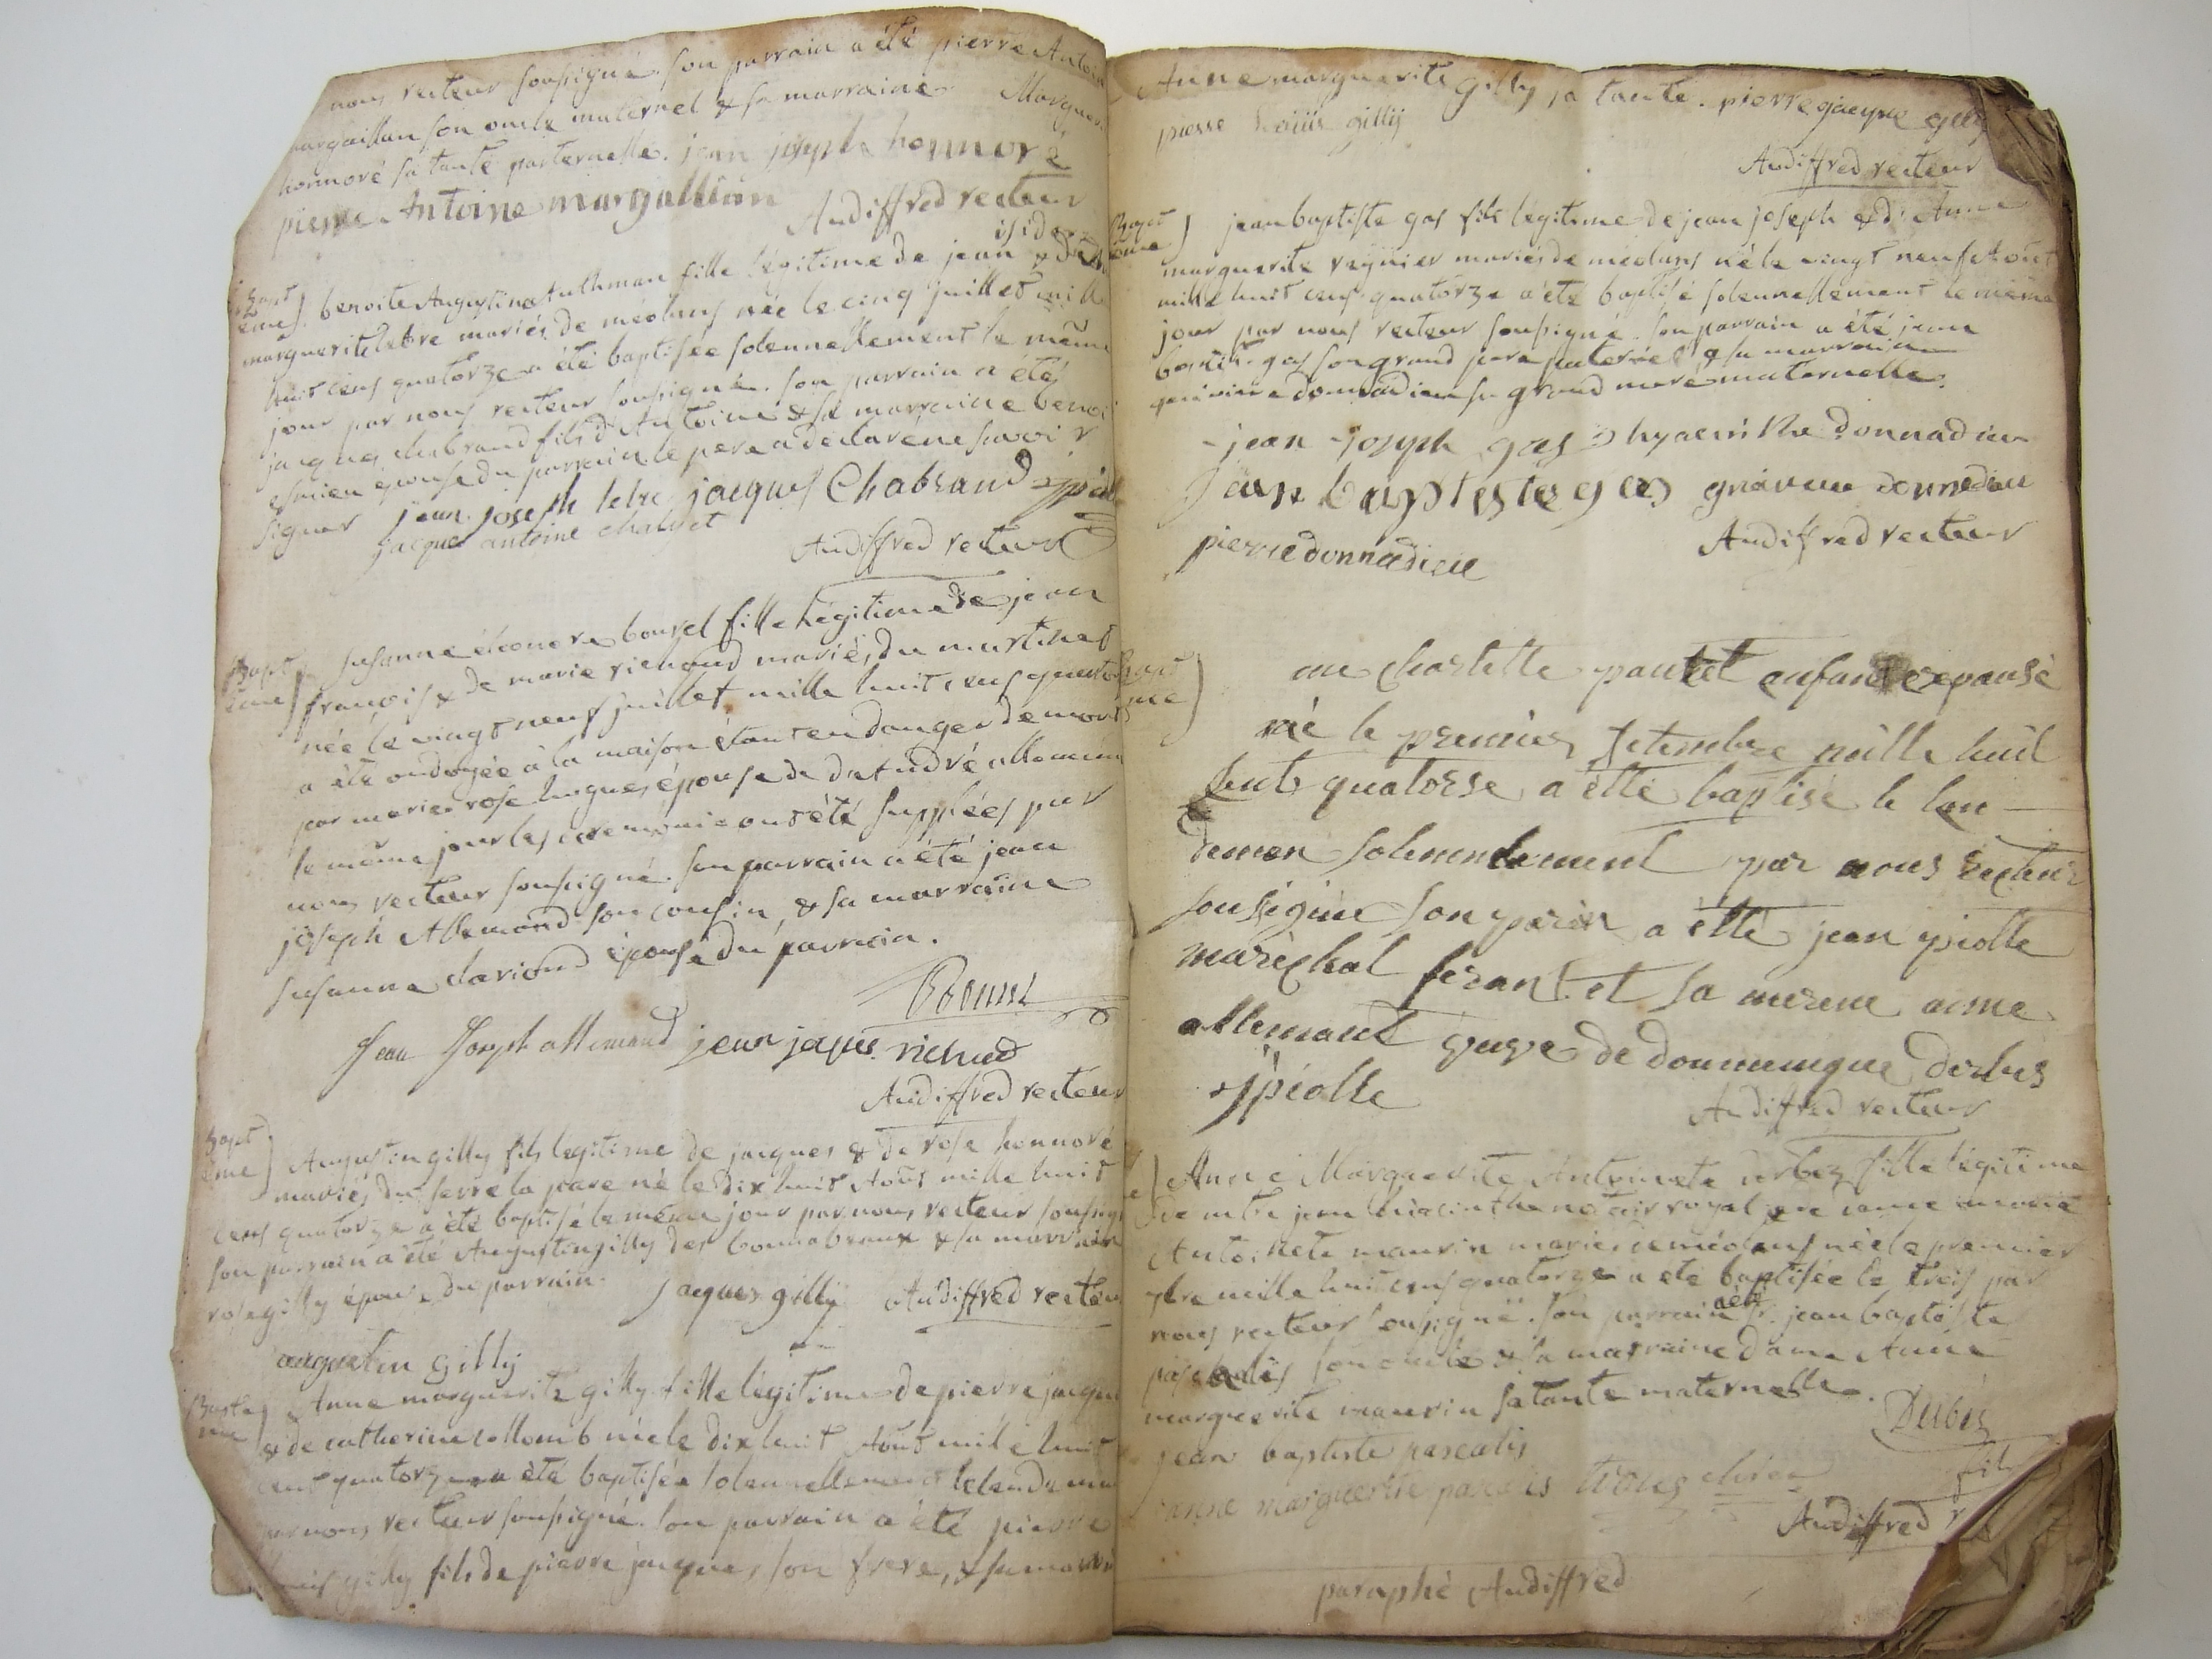 nous recteur soussigné. son parrain a été pierre Antoine
margaillan son oncle maternel & sa marraine Marguer
honnoré sa tante parternelle. jean joseph honnoré
pierre Antoine margallian Audiffred recteur
Bapt
eme
isidor
benoite Augustine Authman fille légitime de jean & de
marguerite lebre mariés de méolans née le cinq juillet mille
huit cens quatorze a été baptisée solennellement le même
jour par nous recteur soussigné. son parrain a été
jacques chabrand fils d'Antoine & sa marraine benoi
esmieu épouse du parrain. le pere a déclaré ne savoir
signer jean joseph lebre jacques Chabrand
jacque antoine
Audiffred recteur
Bapt
eme
susanne éléonore bourel fille légitime de jean
françois & de marie richaud mariés du martinet
née le vingt neuf juillet mille huit cens quator
a été ondoyée à la maison étant en danger de mort
par marie rose hugues épouse de d'André allemand
le même jour les ceremonies ont été supplées par
nous recteur soussigné. son parrain a été jean
joseph Allemand son cousin, & sa marraine
susanne clariond épouse du parrain.
Jean Joseph allemand jean jaques richaud
Audiffred recteur
Bapt
eme
Augustin gilly fils legitime de jacques & de rose honnoré
mariés du serre la pare né le dix huit Août mille huit
cens quatorze a été baptisé le même jour par nous recteur soussigné
son parrain a été Augustin gilly des bonnabeaux & sa marraine
rose gilly épouse du parrain. jaques gilly Audiffred recteur
augustin gilly
Bapte
me
Anne marguerite gilly fille légitime de pierre jacque
& de catherine collomb née le dix huit Aôut mil é huit
cent quatorze a été baptisée solennellement le lendemain
par nous recteur soussigné. son parrain a été pierre
louis gilly fils de pierre jacques son frere, & sa marrai
Anne marguerite gilly sa tante. pierre jacque gilly
pierre louis gilly
Audiffred recteur
Bapt
eme
jean baptiste gas fils légitime de jean joseph & d'Anne
marguerite reynier mariés de meolans né le vingt neuf Aout
mille huit cens quatorze a été baptisé solennellement le même
jour par nous recteur soussigné. son parrain a été jean
baptiste gas son grand pere paternel & sa marraine
geneviève donnadieu sa grand mere maternelle.
jean joseph gas hyacinthe donnadieu
jean baptiste gas donnadieu
pierre donnadieu
Audiffred recteur
Bapt
eme
charlotte enfant exponsé
né le premier setembre mille huit
sent quatorse a étté baptisé le lan
demen solennelement par nous recteur
soussigné son parin a étté jean piolle
maréchal feran et sa mereine anne
allemant de dommenique derbes
jpiolle
Audiffred recteur
Anne Marguerite Antoinete derbez fille légitime
de mtre jean hiacinthe notair royal & de anne marie
Antoinete maurin mariés de méolans née le premier
7bre mille huit cens quatorze a été baptisée le trois par
nous recteur soussigné. son parrain a été Sr. jean baptiste
pascalis son oncle & sa marraine dame Anne
marguerite maurin sa tante maternelle.
Derbés
jean baptiste pascalis
anne marguerite pascalis
fils
Audiffred r
paraphé Audiffred